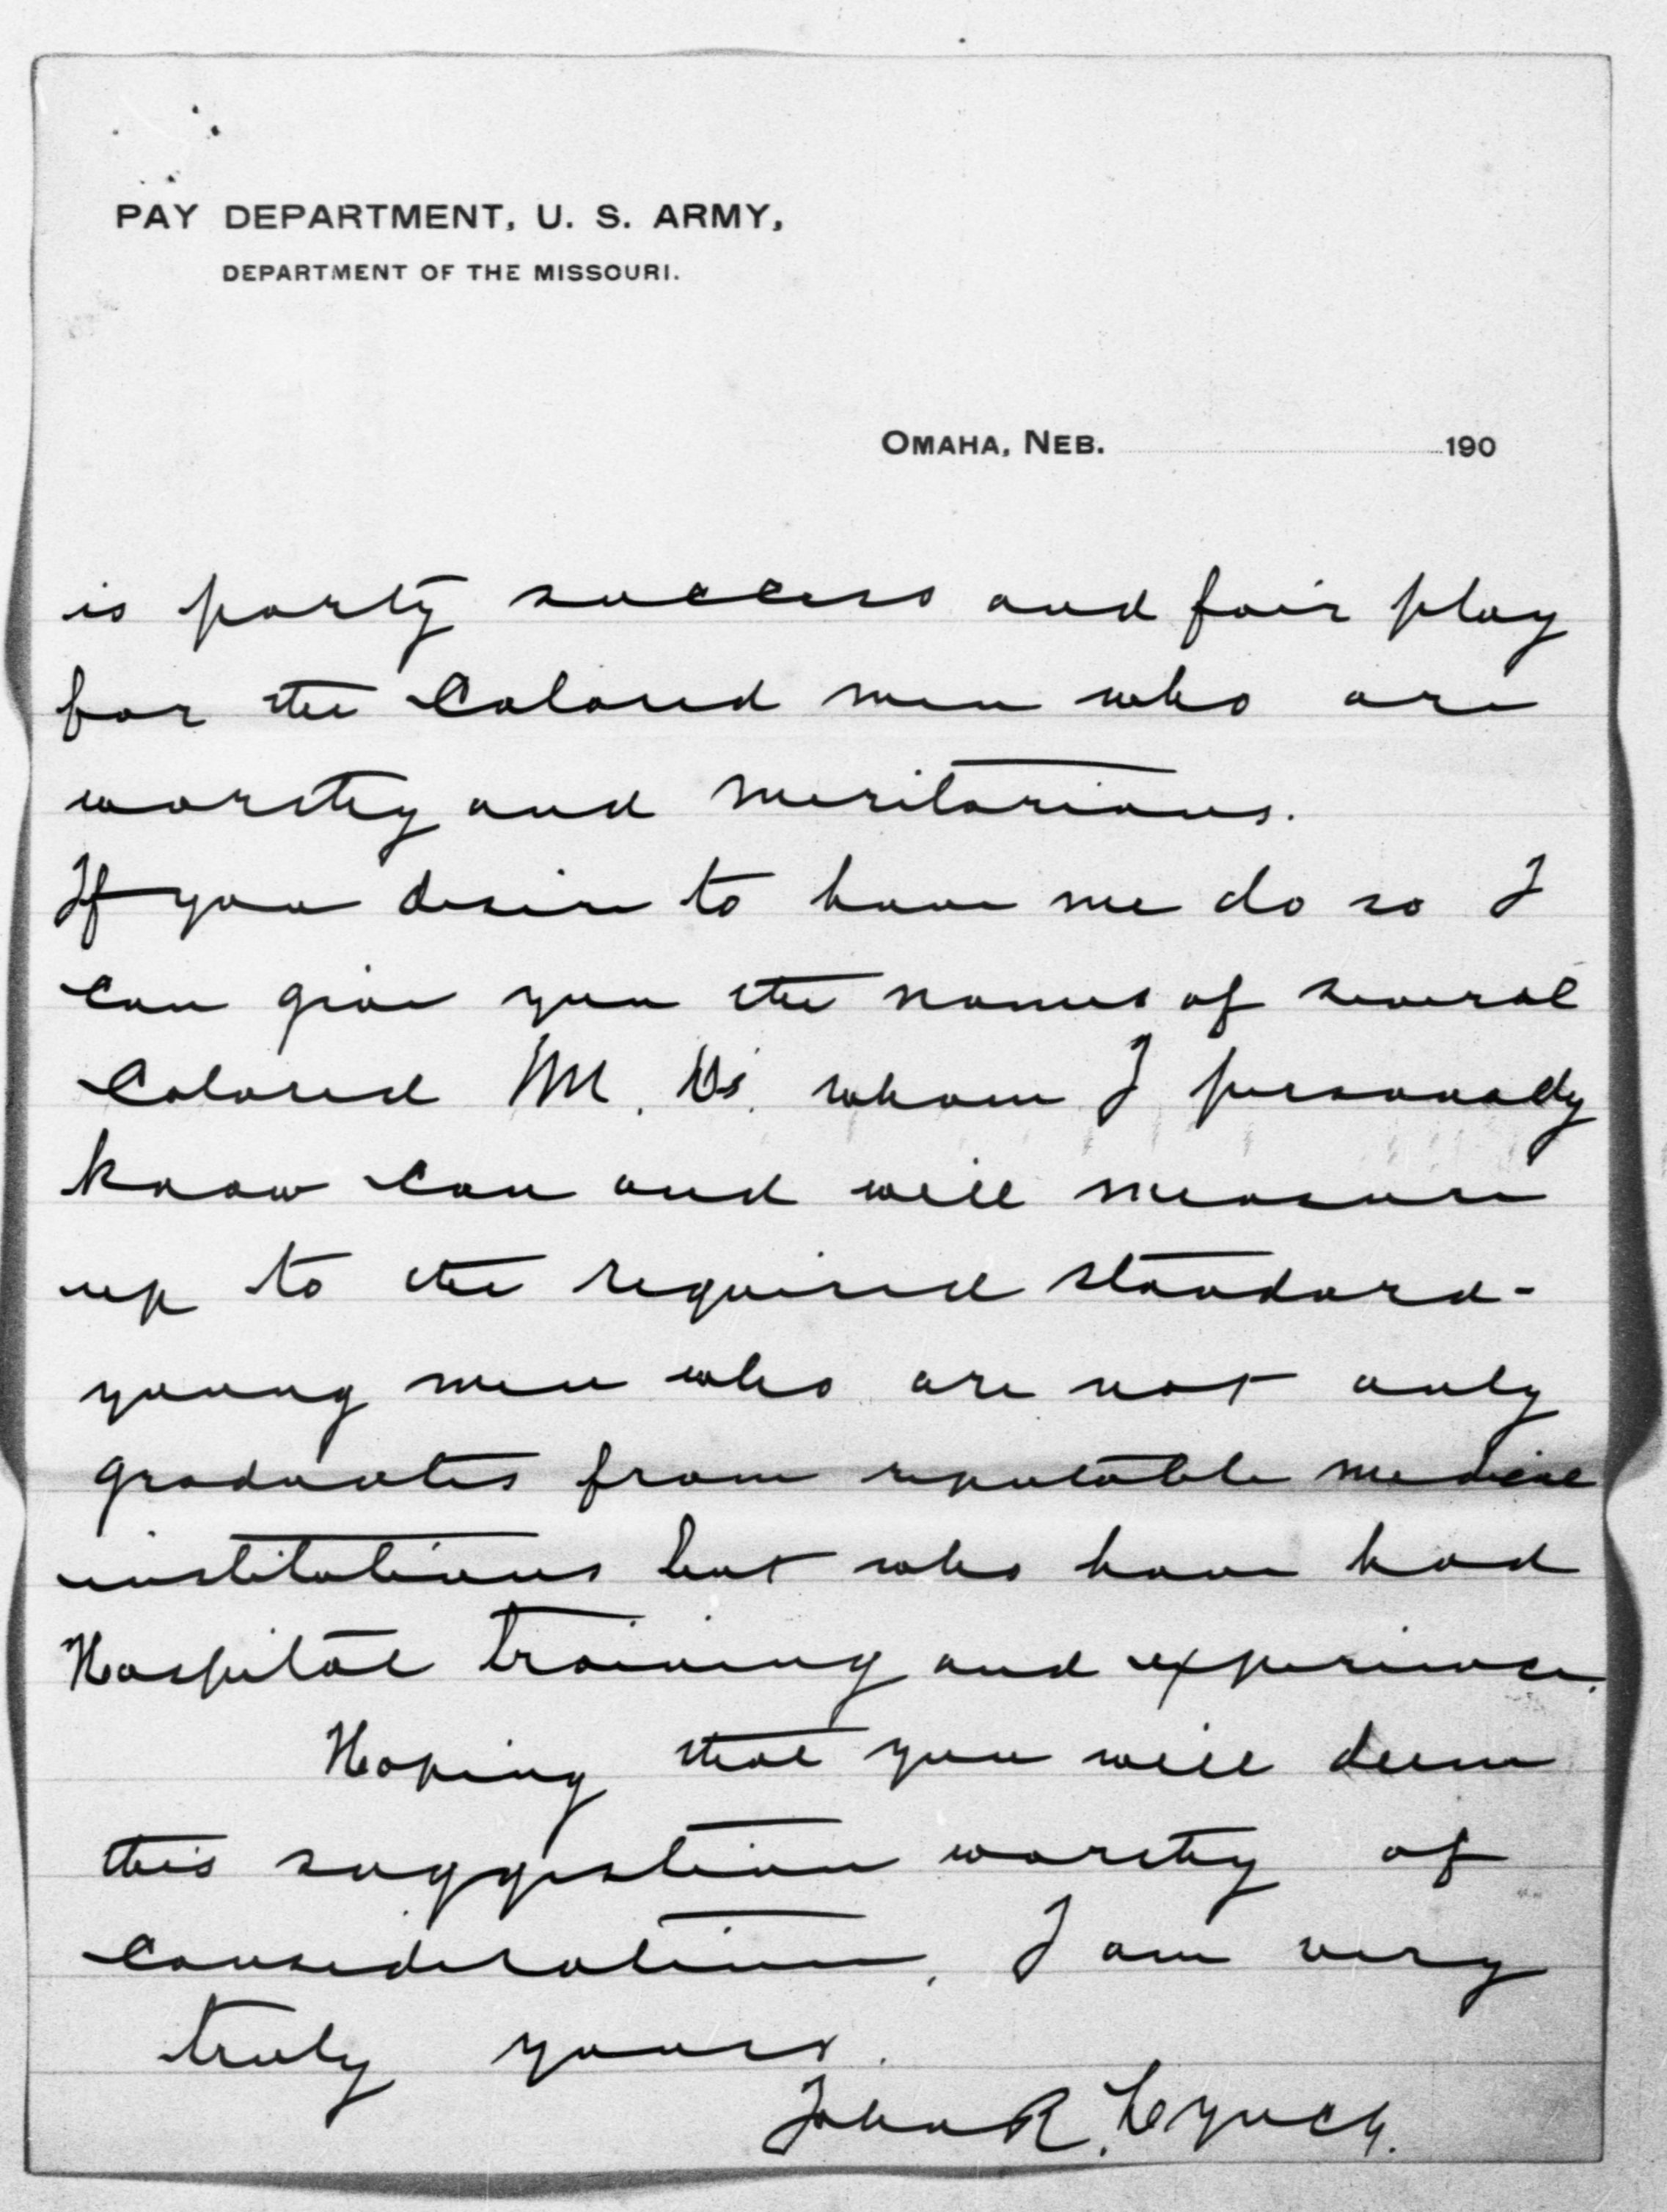 PAY DEPARTMENT, U. S. ARMY,
DEPARTMENT OF THE MISSOURI.
OMAHA, NEB. 190
is party success and fair play
for the Colored men who are
worthy and meritorious.
If you desire to have me do so I
can give you the names of several
Colored M. Ds. whom I personally
know can and will measure
up to the required standard-
young men who are not only
graduates from reputable medical
institutions but who have had
Hospital training and experience.
Hoping that you will deem
this suggestion worthy of
consideration, I am very
truly yours.
John R. Lynch.